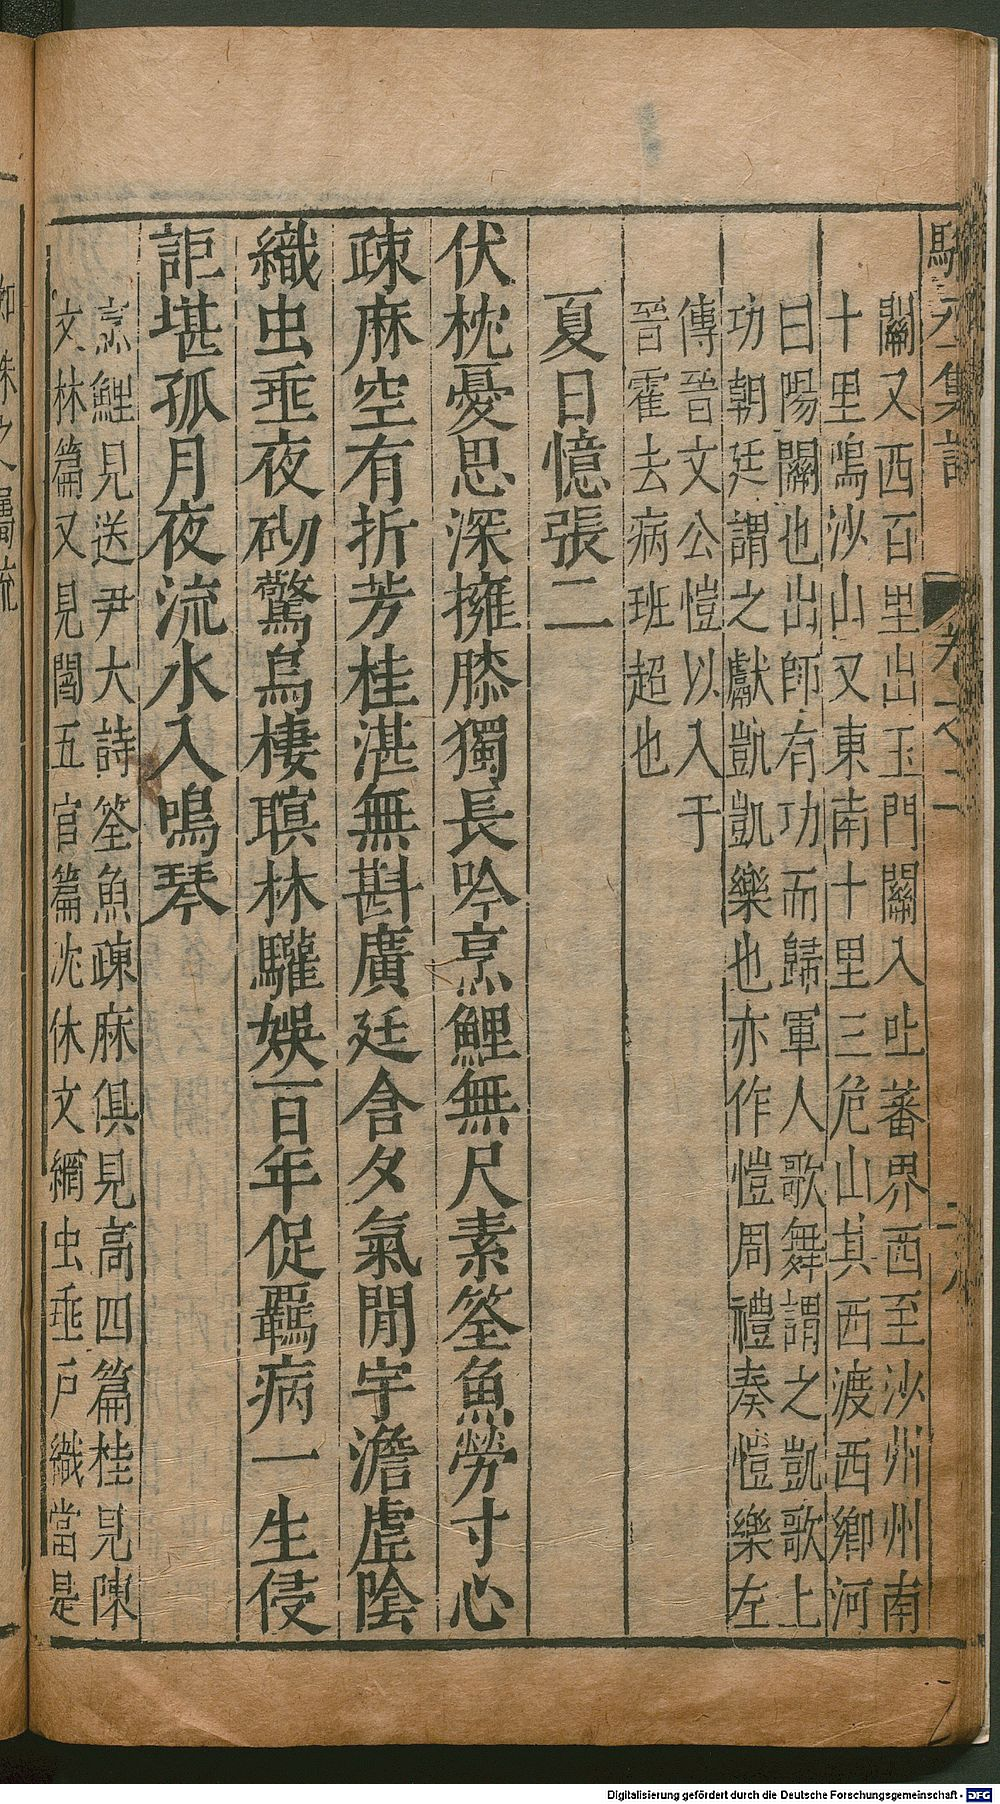 關又西百里出玉門關入吐蕃界西至沙州州南
十里鳴沙山又東南十里三危山其西渡西鄉河
曰陽關也出師有功而歸軍人歌舞謂之凱歌上
功朝廷謂之獻凱凱樂也亦作愷周禮奏愷樂左
傳晉文公愷以入于
晉霍去病班超也
夏日憶張二
伏枕憂思深擁膝獨長吟烹鯉無尺素筌魚勞寸心
疎麻空有折芳桂湛無斟廣廷含夕氣閒宇澹虛陰
織虫垂夜砌驚烏棲暝林驩娛百年促羈病一生侵
詎堪孤月夜流水入鳴琴
烹鯉見送尹大詩筌魚疎麻俱見高四篇桂見陳
文林篇又見閻五官篇沈休文網虫垂戶織當是
Digitalisierung gefördert durch die Deutsche Forschungsgemeinschaft - DFG